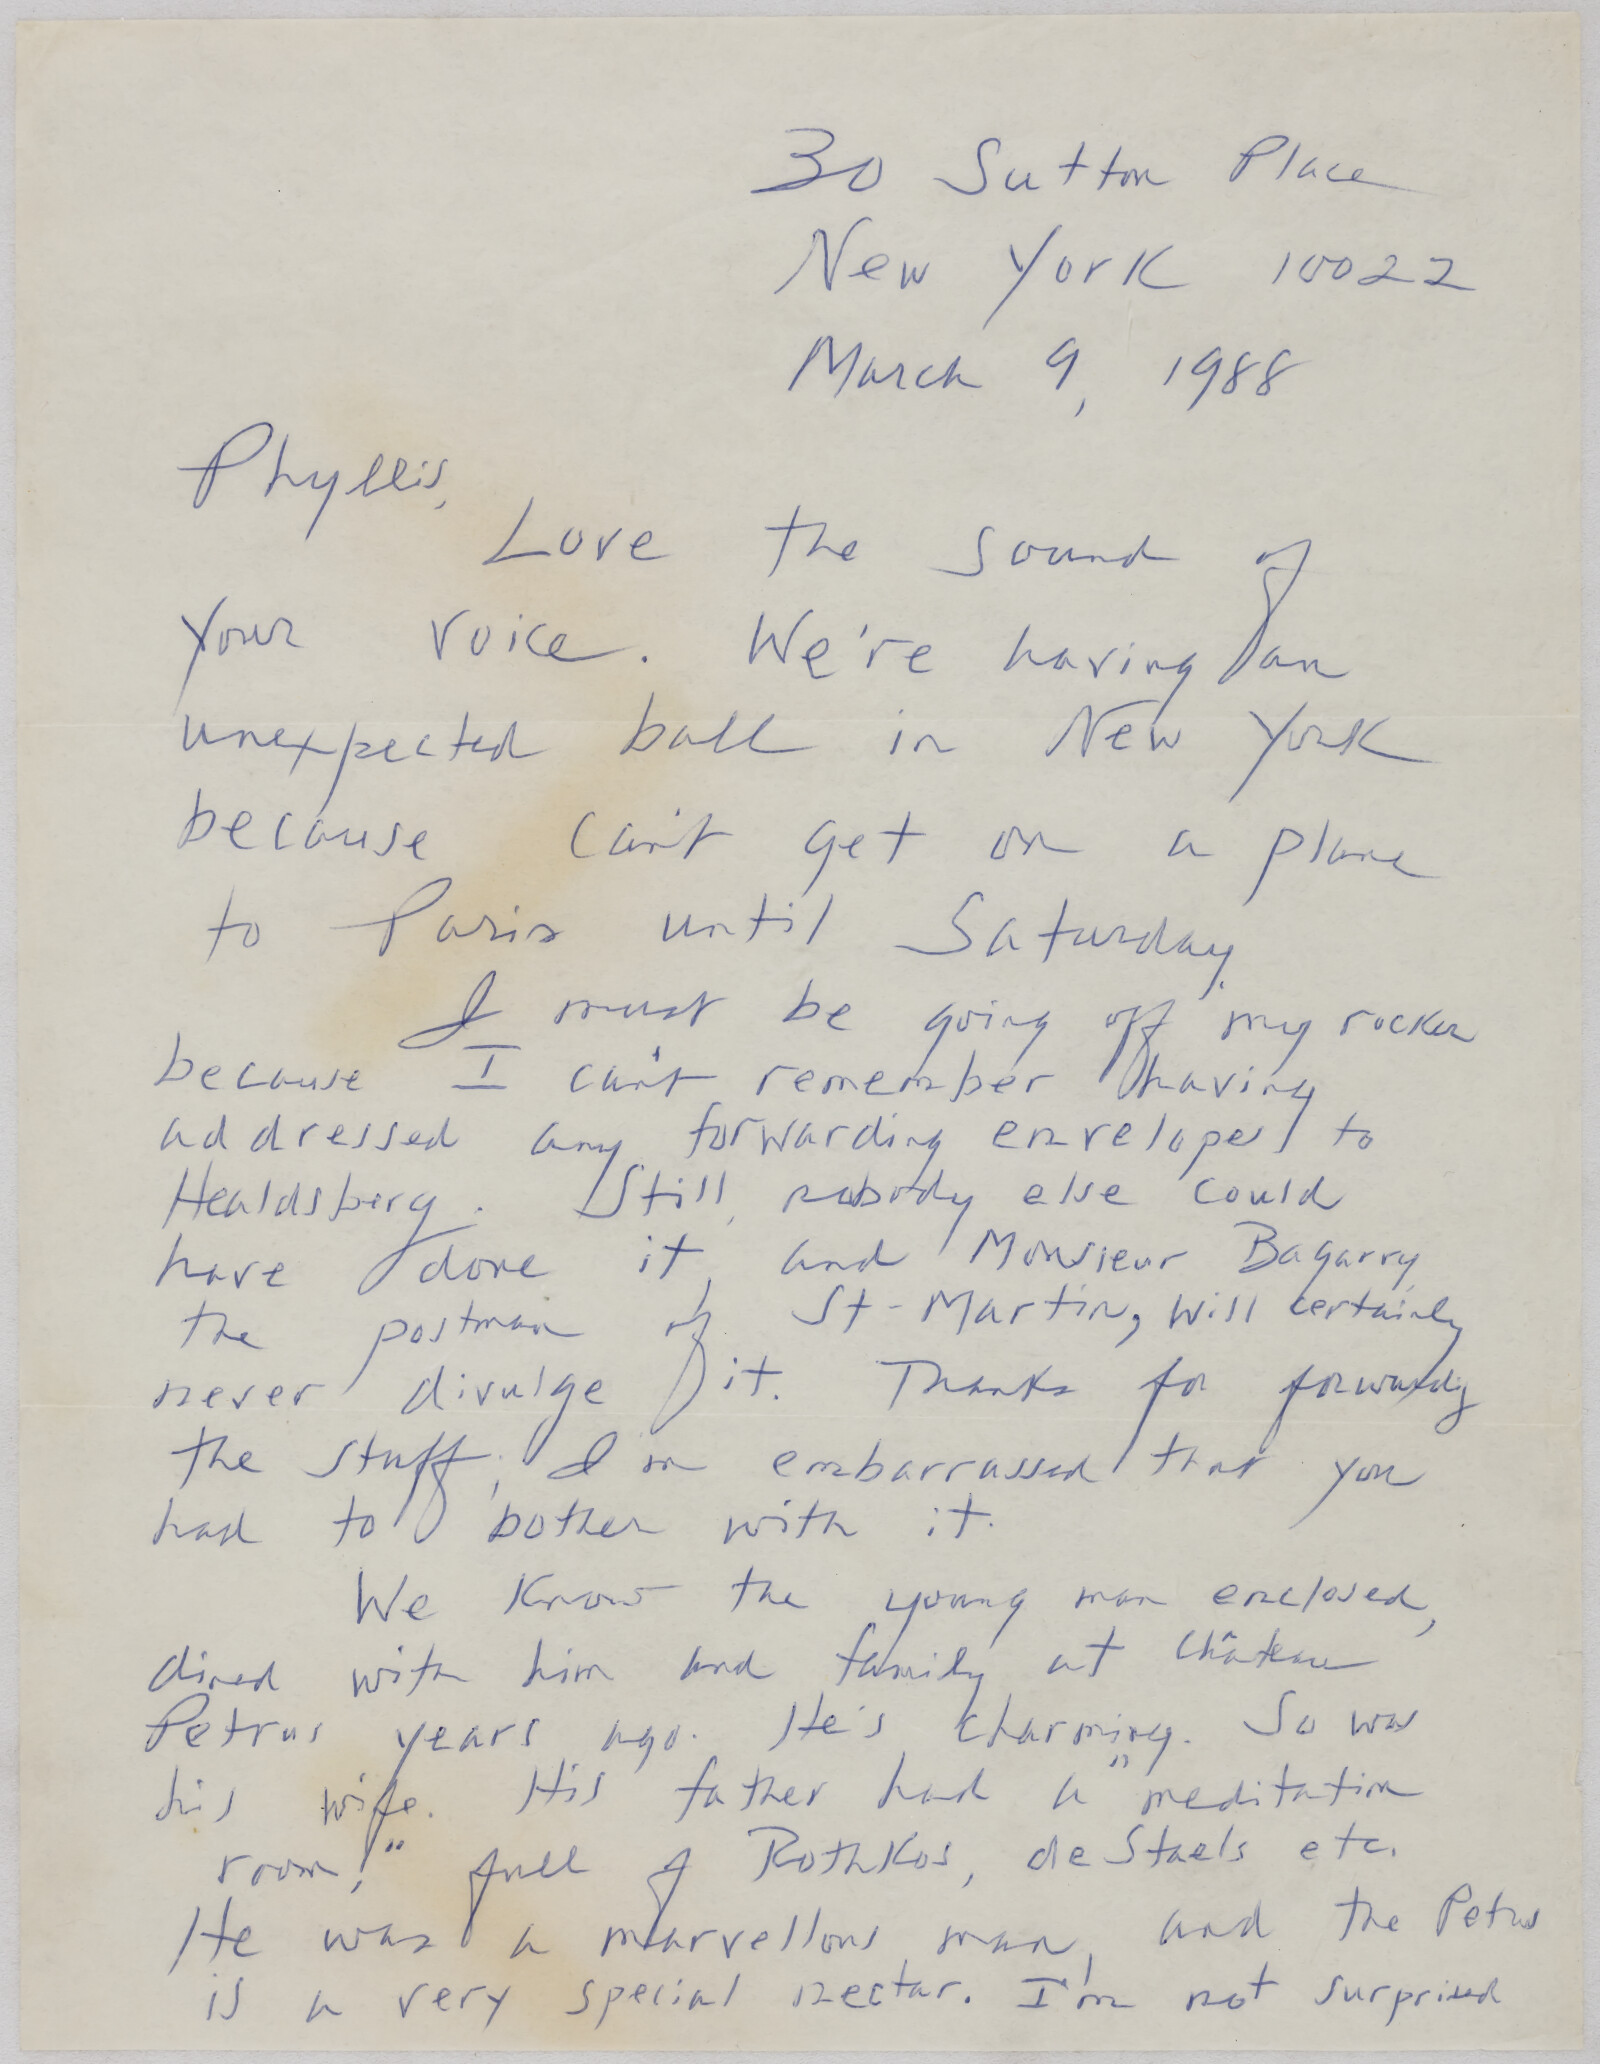 30 Sutton Place
New York 10022
March 9, 1988
Phyllis,
Love the sound of
your voice. We're having an
unexpected ball in New York
because can't get on a plane
to Paris until Saturday.
I must be going off my rocker
because I can't remember having
addressed any forwarding envelopes to
Healdsberg. Still, nobody else could
have done it, and Monsieur Bagarry,
the postman of St-Martin, will certainly
never divulge it. Thanks for forwarding
the stuff; I'm embarrassed that you
had to bother with it.
We know the young man enclosed,
dined with him and family at Château
Petrus years ago. He's charming. So was
his wife. His father had a "meditation
room," full of Rothkos, de Staels etc.
He was a marvellous man, and the Petrus
is a very special nectar. I'm not surprised